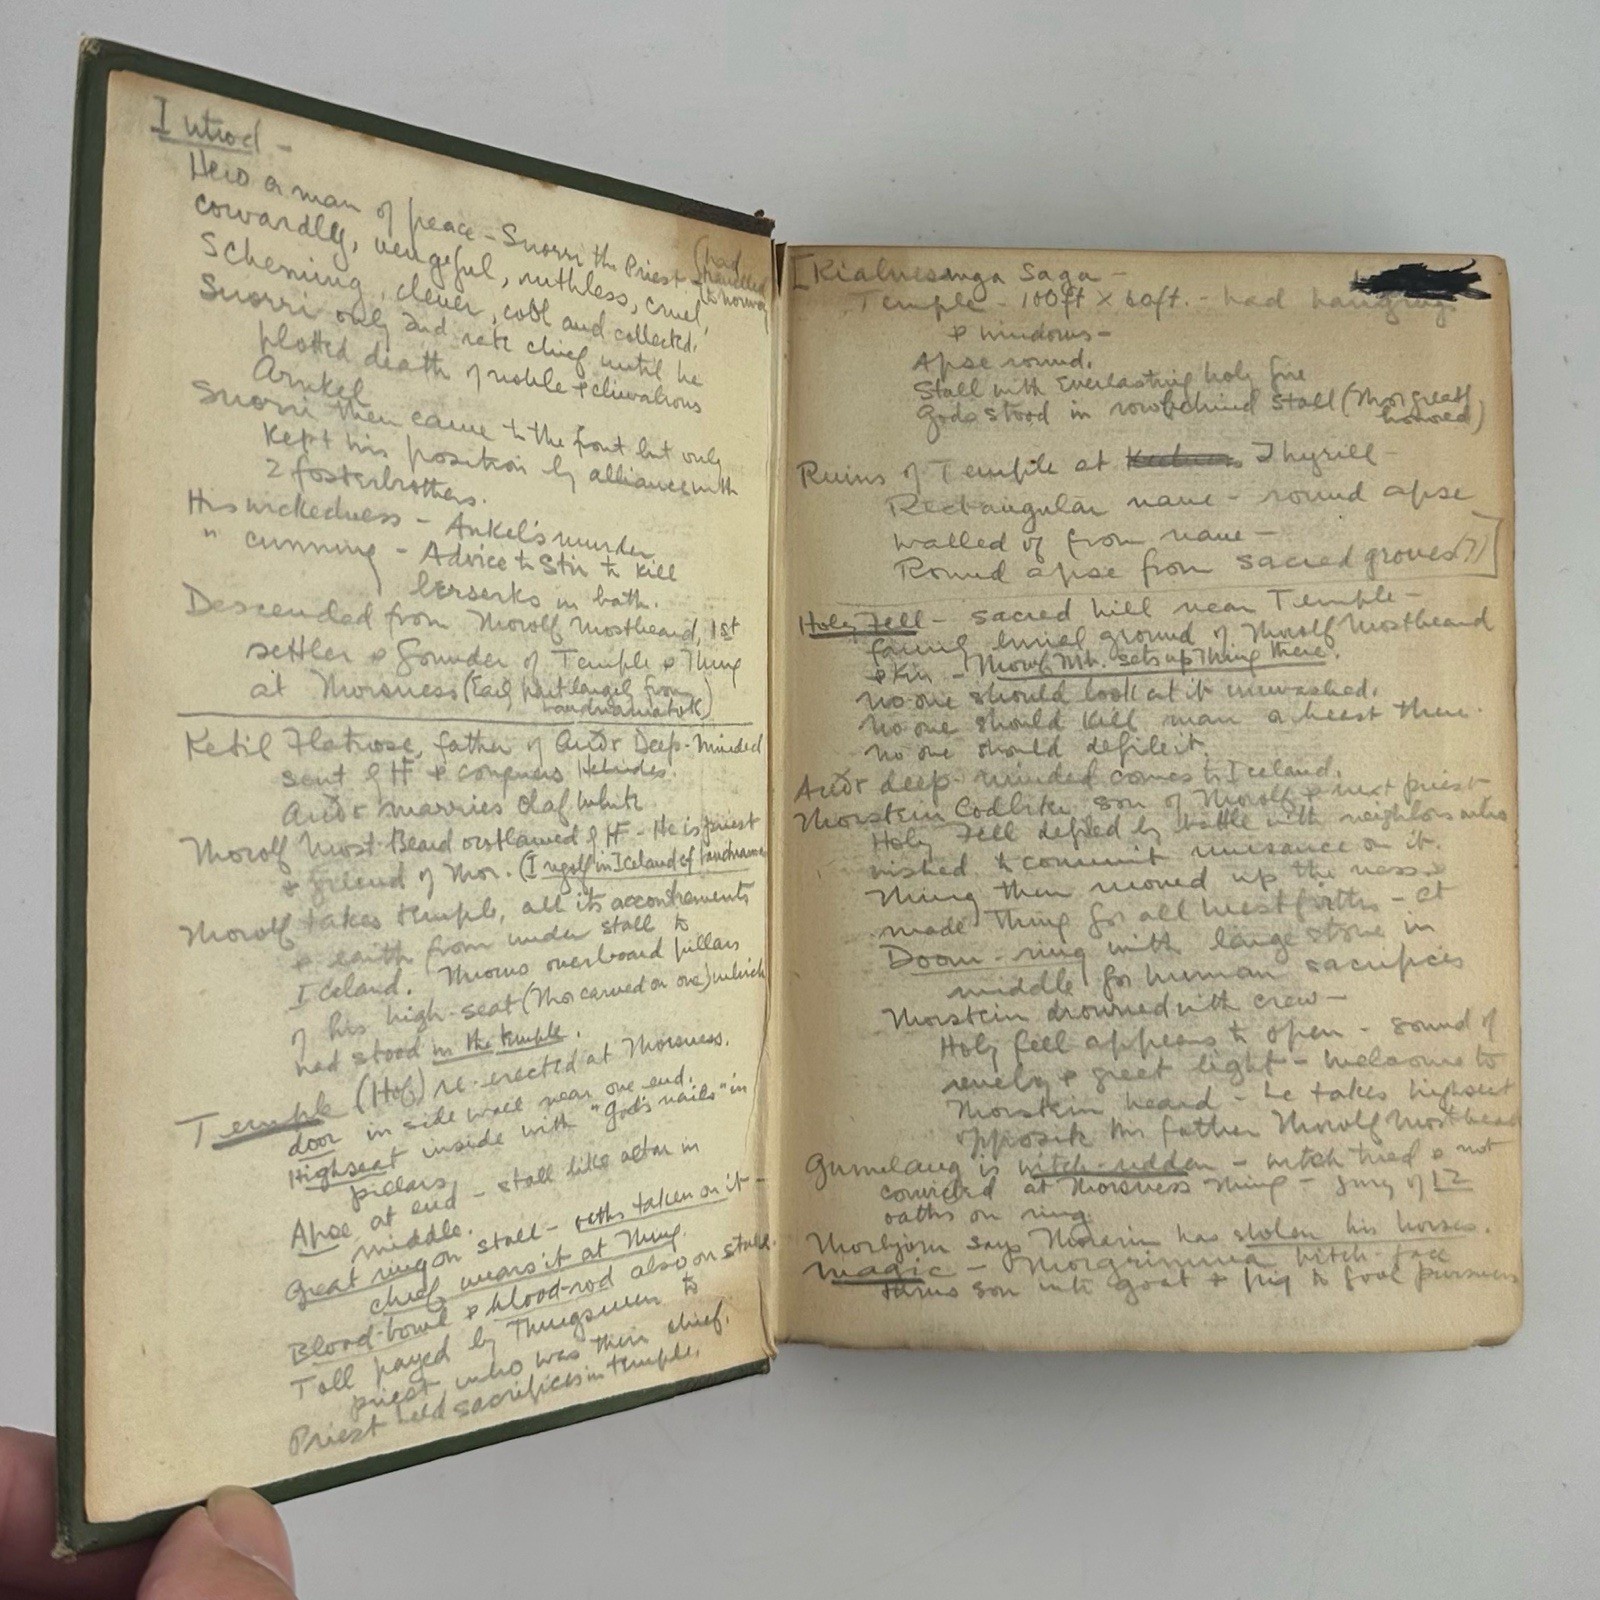 Introd -
Hero a man of peace - Snorri the Priest - (had travelled to Norway)
cowardly, vengeful, ruthless, cruel,
scheming, clever, cool and collected.
Snorri only 2nd rate chief until he
plotted death of noble & chivalrous
Arnkel
Snorri then came to the front but only
kept his position by alliance with
2 fosterbrothers.
His wickedness - Ankel's murder
" cunning - Advice to Stir to kill
berserks in bath.
Descended from Thorolf Mostbeard, 1st
settler & founder of Temple & Thing
at Thorsness (Early part largely from
Landnamabok)
Ketil Flatnose, father of Auðr Deep-Minded
sent by HF & conquers Hebrides.
Auðr marries Olaf White
Thorolf Most-Beard outlawed by HF - He is priest
& friend of Thor. (Ingolf in Iceland cf Landnama
Thorolf takes temple, all its accoutrements
& earth from under stall to
Iceland. Throws overboard pillars
of his high-seat (Thor carved on one) which
had stood in the temple.
Temple (Hof) re-erected at Thorsness.
door in side wall near one end.
Highseat inside with "god's nails" in
pillars
Apse at end - stall like altar in
middle.
Great ring on stall - oaths taken on it -
chief wears it at Thing.
Blood-bowl & blood-rod also on stall.
Toll payed by Thingsmen to
priest who was their chief.
Priest held sacrifices in temple.
[Kialnesinga Saga -
Temple - 100ft x 60ft. - had hangings
& windows -
Apse round.
Stall with everlasting holy fire
Gods stood in row behind stall (Thor greatly
honored)
Ruins of Temple at Thyrill -
Rectangular nave - round apse
walled off from nave -
Round apse from sacred groves?]
Holy Fell - sacred hill near Temple -
family burial ground of Thorolf Mostbeard
& kin - Thorolf Mb. sets up Thing there.
No one should look at it unwashed.
No one should kill man or beast there.
No one should defile it.
Auðr deep-minded comes to Iceland.
Thorstein Codbiter son of Thorolf & next priest
Holy Fell defiled by battle with neighbors who
wished to commit nuisance on it.
Thing then moved up the ness &
made Thing for all Westfirths - Ct
Doom-ring with large stone in
middle for human sacrifices
Thorstein drowned with crew -
Holy fell appears to open - sound of
revelry & great light - Welcome to
Thorstein heard - he takes highseat
opposite his father Thorolf Mostbeard
Gunnlaug is witch-ridden - witch tried & not
convicted at Thorsness Thing - Jury of 12
oaths on ring
Thorbjorn says Thorarin has stolen his horses.
Magic - Thorgrimma witch-face
turns son into goat & pig to fool pursuers